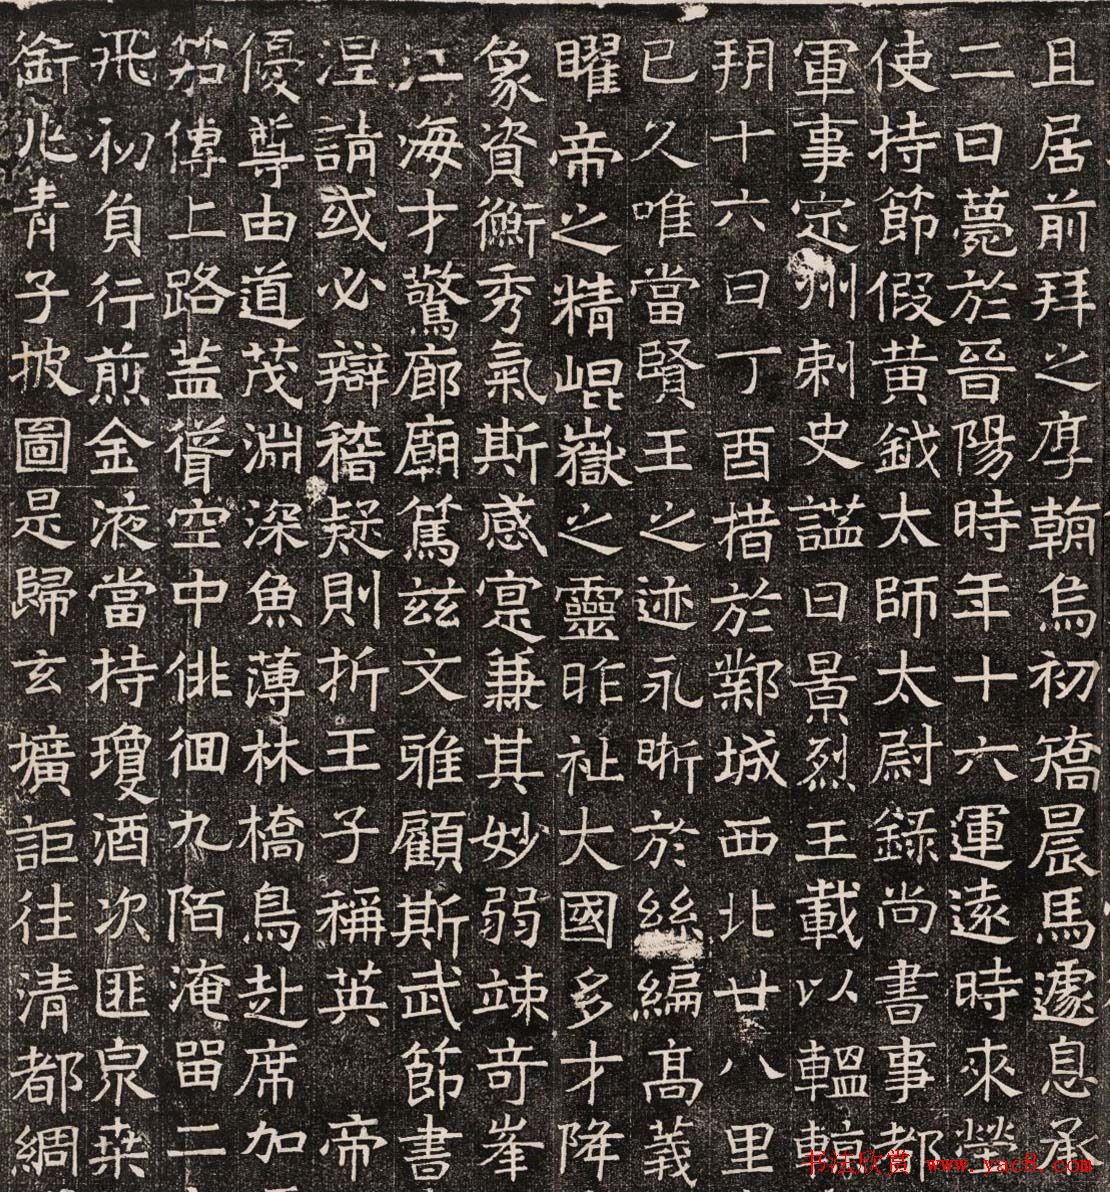 且居前拜之序輈烏初矯晨馬遽息承
二日薨於晉陽時年十六運遠時來塋
使持節假黃鉞太師太尉錄尚書事都
軍事定州刺史諡曰景烈王載以轀輬
朔十六日丁酉措於鄴城西北廿八里
已久唯當賢王之迹永晰於絲編高義
曜帝之精崐嶽之靈昨祉大國多才降
象資衡秀氣斯感寔兼其妙弱竦奇峯
江海才驚廊廟篤茲文雅顧斯武節書
涅請或必辯稽疑則折王子稱英 帝
優尊由道茂淵深魚薄林橋鳥赴席加
笳傳上路蓋聳空中俳徊九陌淹留二
飛初負行煎金液當持瓊酒次匪泉奄
銜兆青子披圖是歸玄壙詎往清都綢
书法欣赏 www.yac8.com